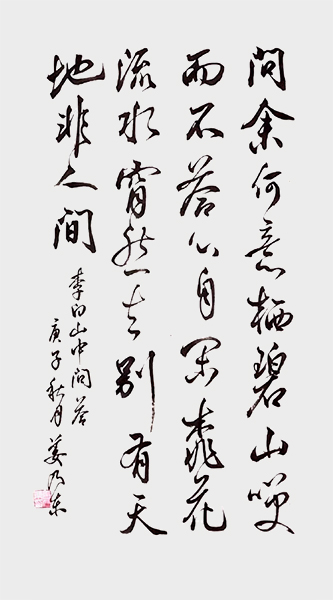 問余何意栖碧山咲
而不答心自闲桃花
流水窅然去别有天
地非人间
李白山中问答
庚子秋月姜乃东